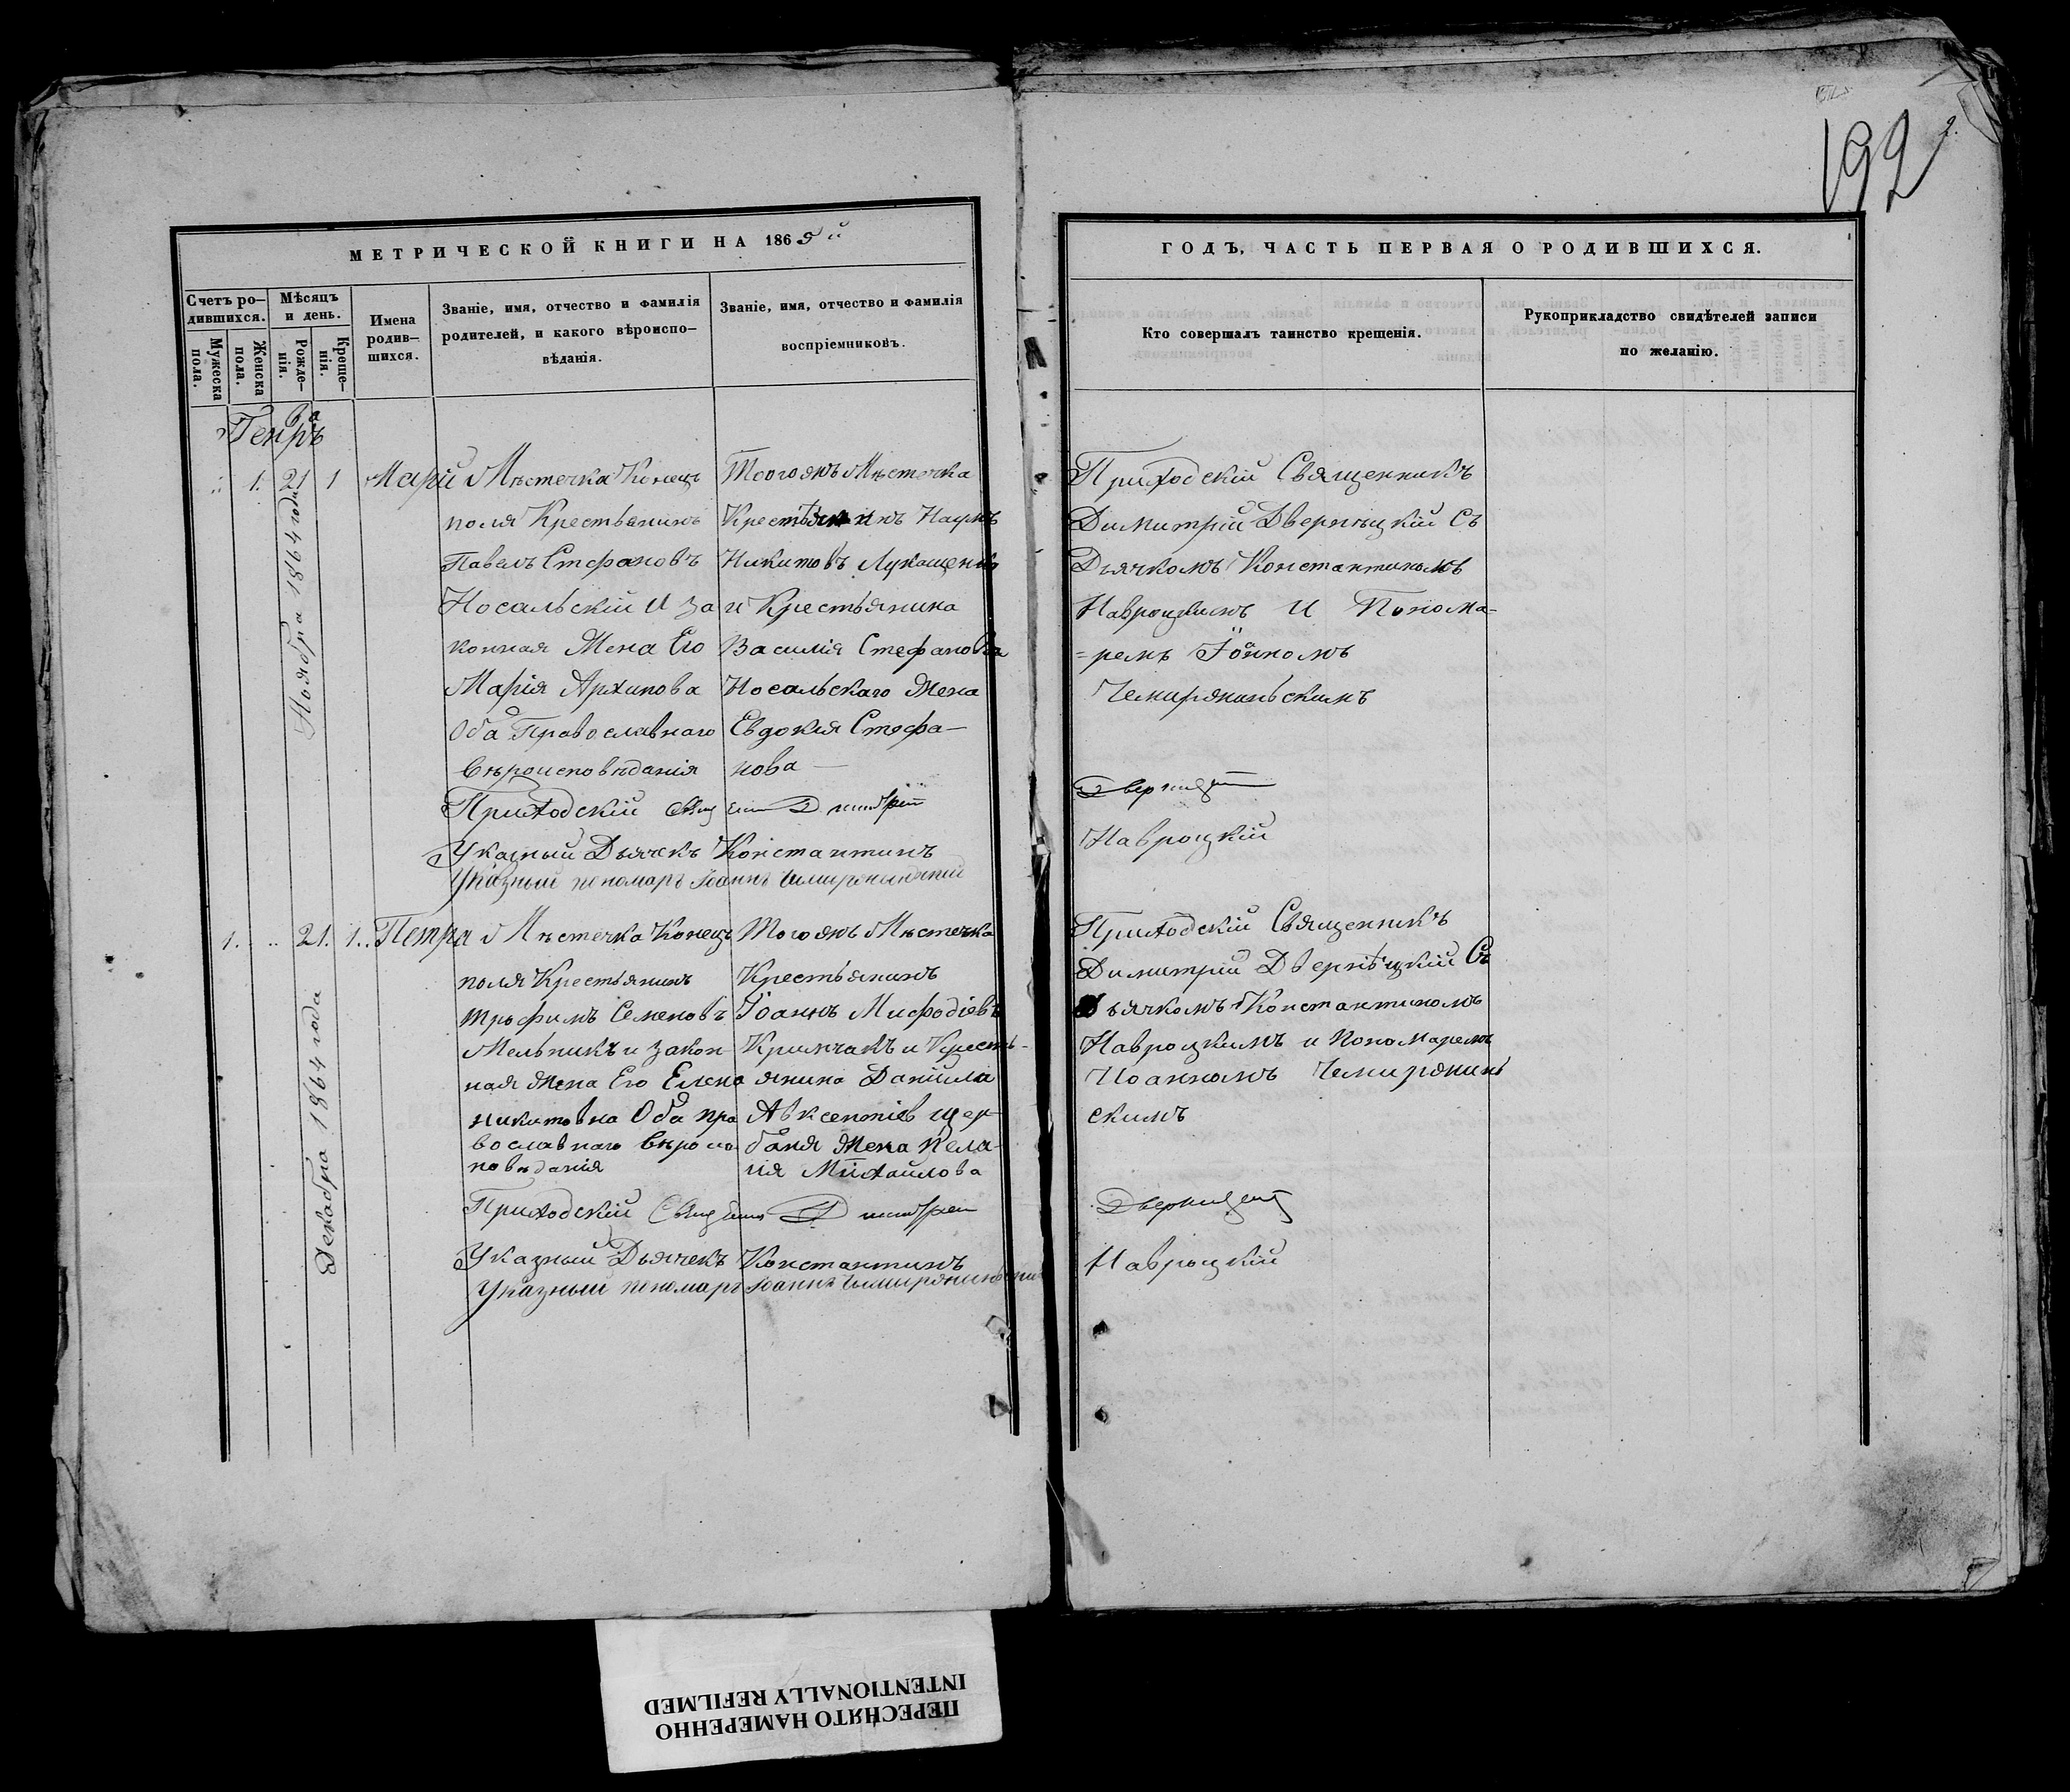 192
МЕТРИЧЕСКОЙ КНИГИ НА 1865й
ГОДЪ, ЧАСТЬ ПЕРВАЯ О РОДИВШИХСЯ.
Счетъ ро-
дившихся.
Мужеска
пола.
Женска
пола.
Мѣсяцъ
и день.
Рожде-
нія.
Креще-
нія.
Имена
родив-
шихся.
Званіе, имя, отчество и фамилія
родителей, и какого вѣроиспо-
вѣданія.
Званіе, имя, отчество и фамилія
воспріемниковъ.
Кто совершалъ таинство крещенія.
Рукоприкладство свидѣтелей записи
по желанію.
1. 21 1 Марій
Ноября 1864 года
Мѣстечка Конец
поля Крестьянинъ
Павелъ Стефановъ
Носальскій и за
конная Жена Его
Марія Архипова
Оба Православнаго
Вѣроисповѣданія
Тогожъ Мѣстечка
Крестьянинъ Наумъ
Никитовъ Лукащенко
и Крестьянина
Василія Стефанова
Носальскаго Жена
Евдокия Стефа-
нова
Приходскій Священникъ
Димитрій Дверницкій Съ
Дьячкомъ Константиномъ
Навроцкимъ и Понома-
=ремъ Іоанномъ
Чемирянинскимъ
Приходскій Димитрій
Указный Дьячекъ Константинъ
Навроцкій
Указный пономарь Іоаннъ
1. 21. 1. Петра
Декабра 1864 года
Мѣстечка Конец
поля Крестьянинъ
Трофимъ Семеновъ
Мельникъ и закон
ная Жена Его Елена
никитовна Оба пра
вославнаго Вѣрои
повѣданія
Тогожъ Мѣстечка
Крестьянинъ
Іоаннъ Мифодіевъ
Кримчакъ и Кресть-
янина Даніила
Авксентіев щер
баня Жена Пела-
гія Михайлова
Приходскій Священникъ
Димитрій Дверніцкій Съ
ьячкомъ Константиномъ
Навроцкимъ и Пономаремъ
Иоанномъ Чемирянинь
скимъ
Приходскій Димитрій
Указный Дьячекъ Константинъ
Навроцкій
Указный пономарь Іоаннъ
ПЕРЕСНЯТО НАМЕРЕННО
INTENTIONALLY REFILMED